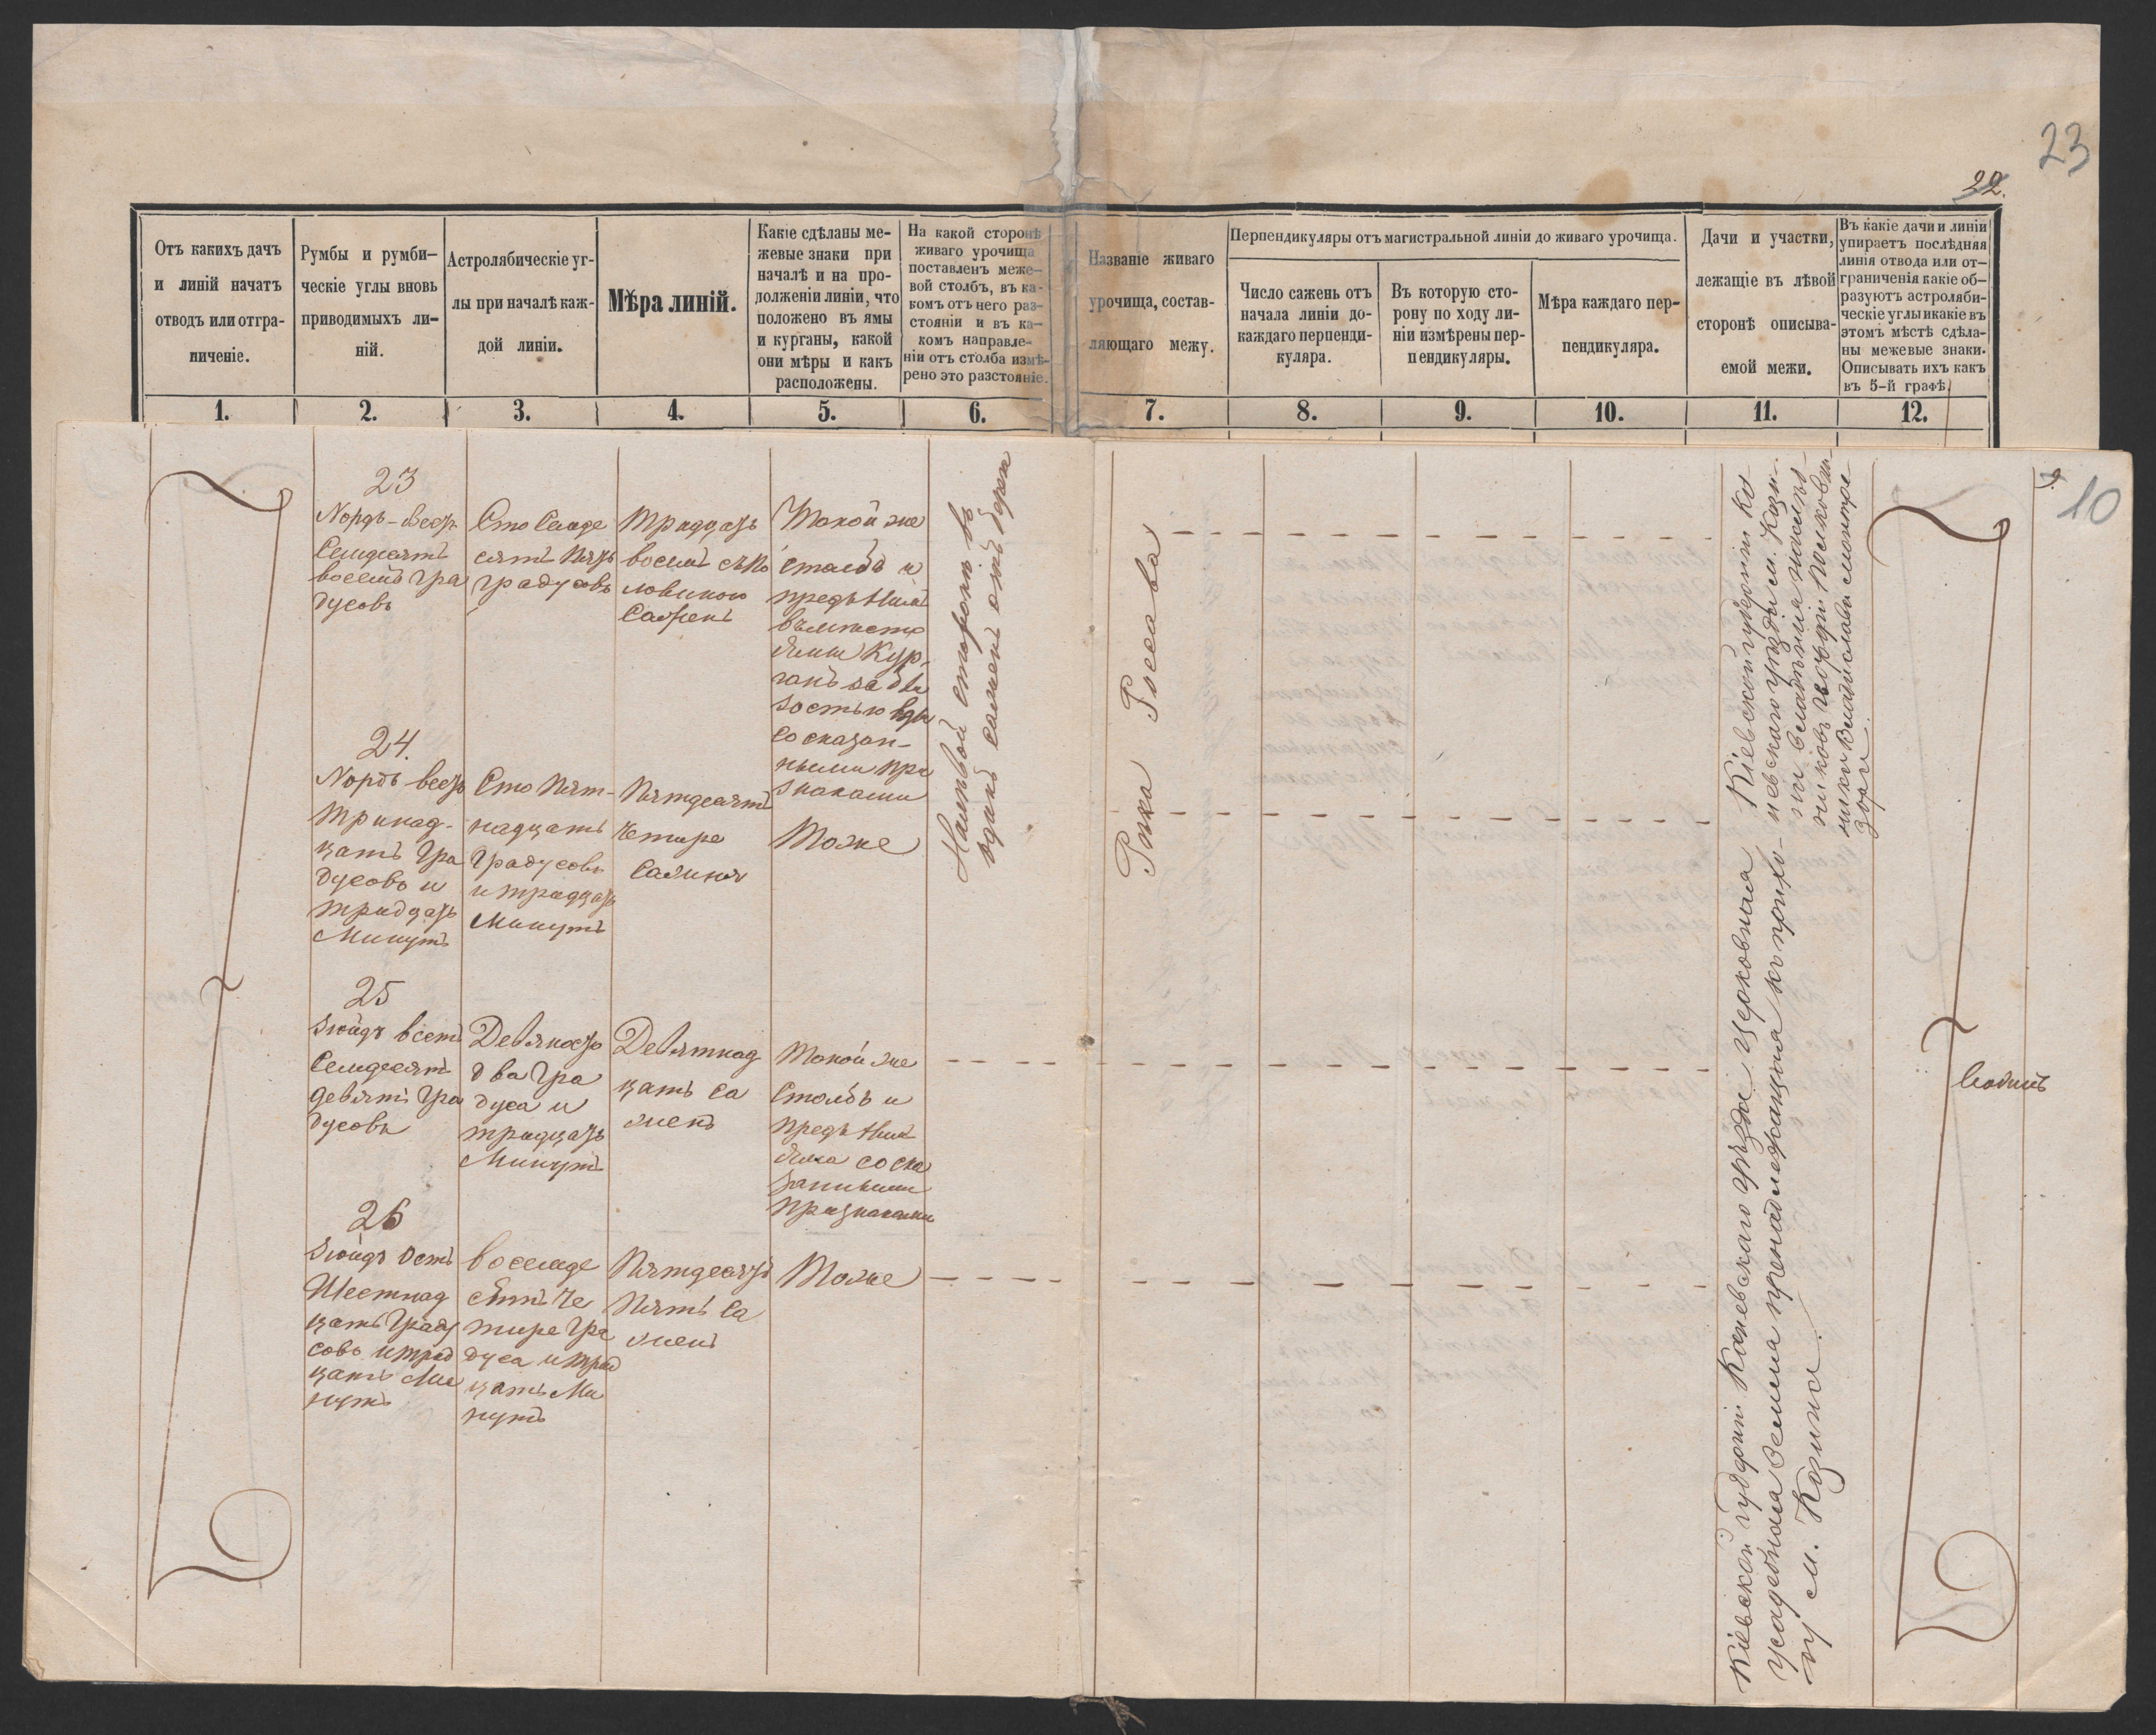 23
22.
Отъ какихъ дачъ
и линій начатъ
отводъ или отгра-
ниченіе.
Румбы и румби-
ческіе углы вновь
приводимыхъ ли-
ній.
Астролябическіе уг-
лы при началѣ каж-
дой линіи.
Мѣра линій.
Какіе сдѣланы ме-
жевые знаки при
началѣ и на про-
долженіи линіи, что
положено въ ямы
и курганы, какой
они мѣры и какъ
расположены.
На какой сторонѣ
живаго урочища
поставленъ меже-
вой столбъ, въ ка-
комъ отъ него раз-
стояніи и въ ка-
комъ направле-
ніи отъ столба измѣ-
рено это разстояніе.
Названіе живаго
урочища, состав-
ляющаго межу.
Перпендикуляры отъ магистральной линіи до живаго урочища.
Число сажень отъ
начала линіи до
каждаго перпенди-
куляра.
Въ которую сто-
рону по ходу ли-
ніи измѣрены пер-
пендикуляры.
Мѣра каждаго пер-
пендикуляра.
Дачи и участки,
лежащіе въ лѣвой
сторонѣ описыва-
емой межи.
Въ какіе дачи и линіи
упираетъ послѣдняя
линія отвода или от-
граниченія какіе об-
разуютъ астроляби-
ческіе углы и какіе въ
этомъ мѣстѣ сдѣла-
ны межевые знаки.
Описывать ихъ какъ
въ 5-й графѣ.
1. 2. 3. 4. 5. 6. 7. 8. 9. 10. 11. 12.
9.
10
23
Нордъ-Вестъ
Семдесятъ
восемь гра
дусовъ
Сто Семде
сятъ Пять
градусовъ
Тридцать
восемь съ по
ловиною
Сажень
Такой же
столбъ и
предъ нимъ
вмѣсто
ямы Кур-
ганъ за бли
зостью воды
со сказан-
ными при
знаками
24.
Нордъ вестъ
тринад-
цать Гра
дусовъ и
тридцать
Минутъ
Сто Пят-
надцать
Градусовъ
и тридцать
Минутъ
Пятдесятъ
четыре
Сажня
Тоже
25
Зюйдъ вестъ
Семдесятъ
девять Гра
дусовъ
Девяносто
два Гра
дуса и
тридцать
Минутъ
Девятнад
цать Са
жень
Такой же
Столбъ и
предъ нимъ
яма со ска
занными
признаками
26
Зюйдъ Остъ
Шестнад
цать Граду
совъ и трид
цать Ми
нутъ
восемде
сятъ Че
тыре Гра
дуса и трид
цать Ми
нутъ
Пятдесятъ
Пять Са
жень
Тоже
На лѣвой сторонѣ въ
одной сажени отъ берега
Рѣка Россава
Кіевской губерніи Каневскаго уѣзда Церковная
усадебная Земля принадлежащая къ прихо-
ду м. Козина.
Кіевской губерніи Ка-
невскаго уѣзда м. Кози-
на владѣнія